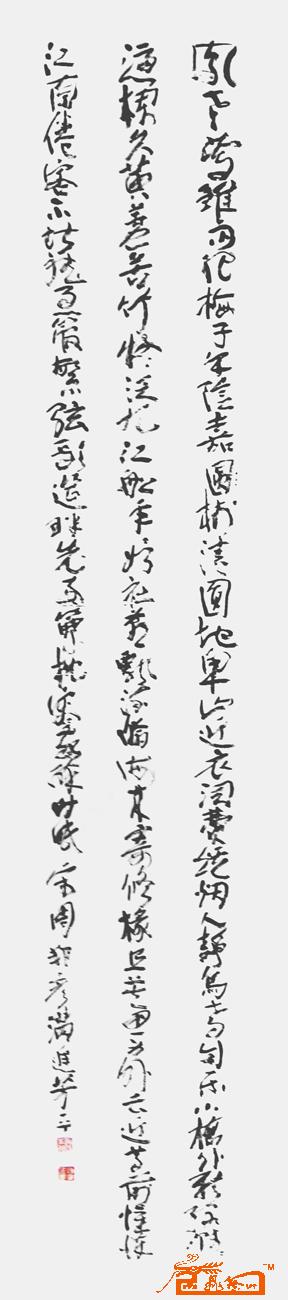 風老鶯雛雨肥梅子午陰嘉圓樹清圓地卑山近衣潤費炉烟人靜烏鳶自樂小橋外新綠濺濺
憑欄久黄蘆苦竹疑泛九江船年年如社燕飄流瀚海來寄修椽且莫思身外長近尊前憔悴
江南倦客不堪聽急管繁弦歌筵畔先安簟枕容我醉時眠 宋周邦彦滿庭芳